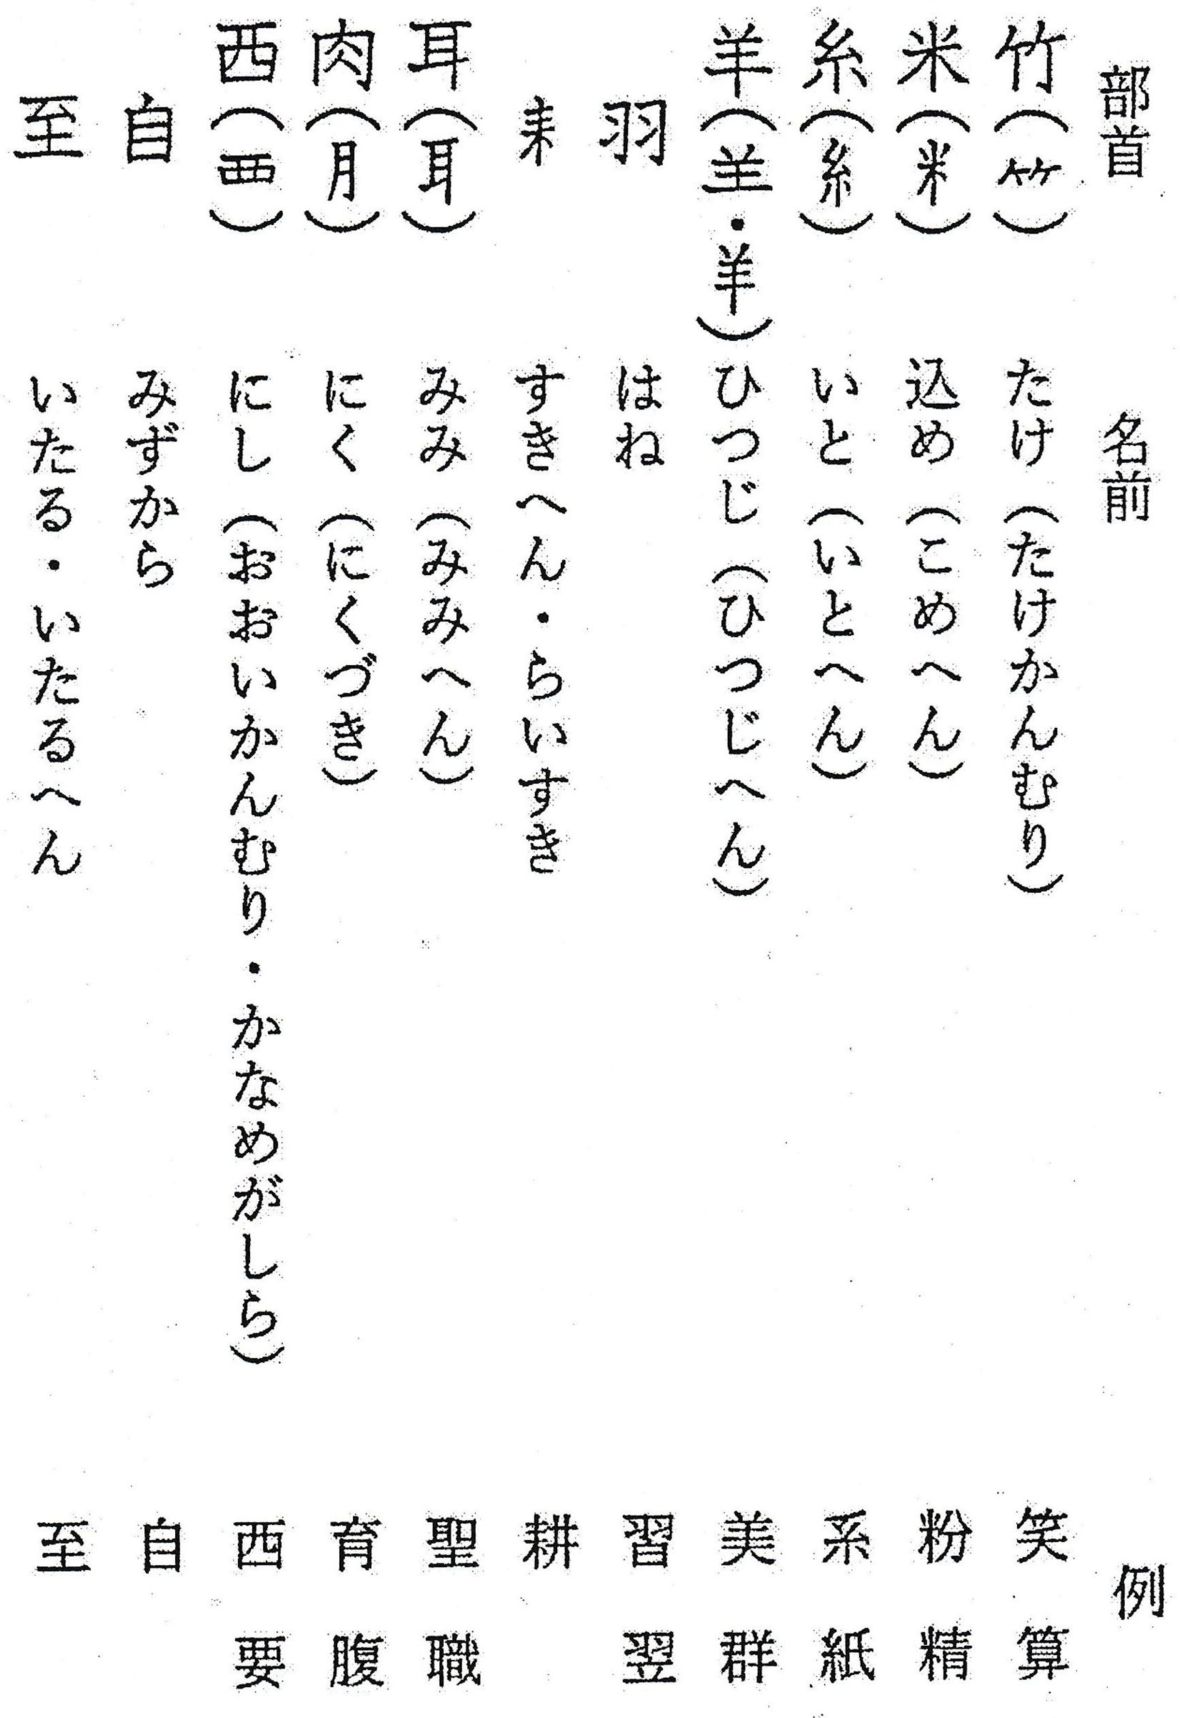 部首　名前　例
竹(⺮)　たけ(たけかんむり)　笑　算
米(米)　込め(こめへん)　粉　精
糸(糹)　いと(いとへん)　系　紙
羊(⺷・羊)　ひつじ(ひつじへん)　美　群
羽　はね　習　翌
耒　すきへん・らいすき　耕
耳(耳)　みみ(みみへん)　聖　職
肉(月)　にく(にくづき)　育　腹
西(覀)　にし(おおいかんむり・かなめがしら)　西　要
自　みずから　自
至　いたる・いたるへん　至